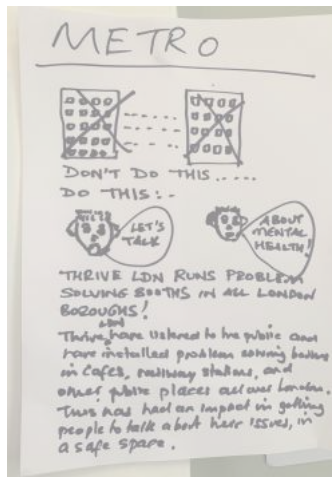 METRO
DON'T DO THIS.....
DO THIS:-
LET'S
TALK
ABOUT
MENTAL
HEALTH!
THRIVE LDN RUNS PROBLEM
SOLVING BOOTHS IN ALL LONDON
BOROUGHS!
LDN
Thrive have listened to the public and
have installed problem solving booths
in cafes, railway stations, and
other public places across London.
This has had an impact in getting
people to talk about their issues, in
a safe space.